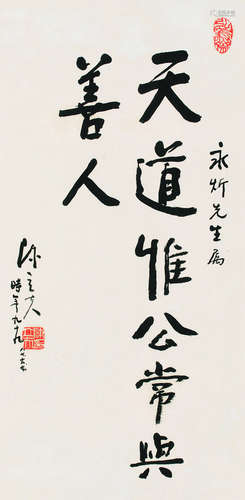 永炘先生属
天道惟公常與
善人
陳立夫
時年九十九